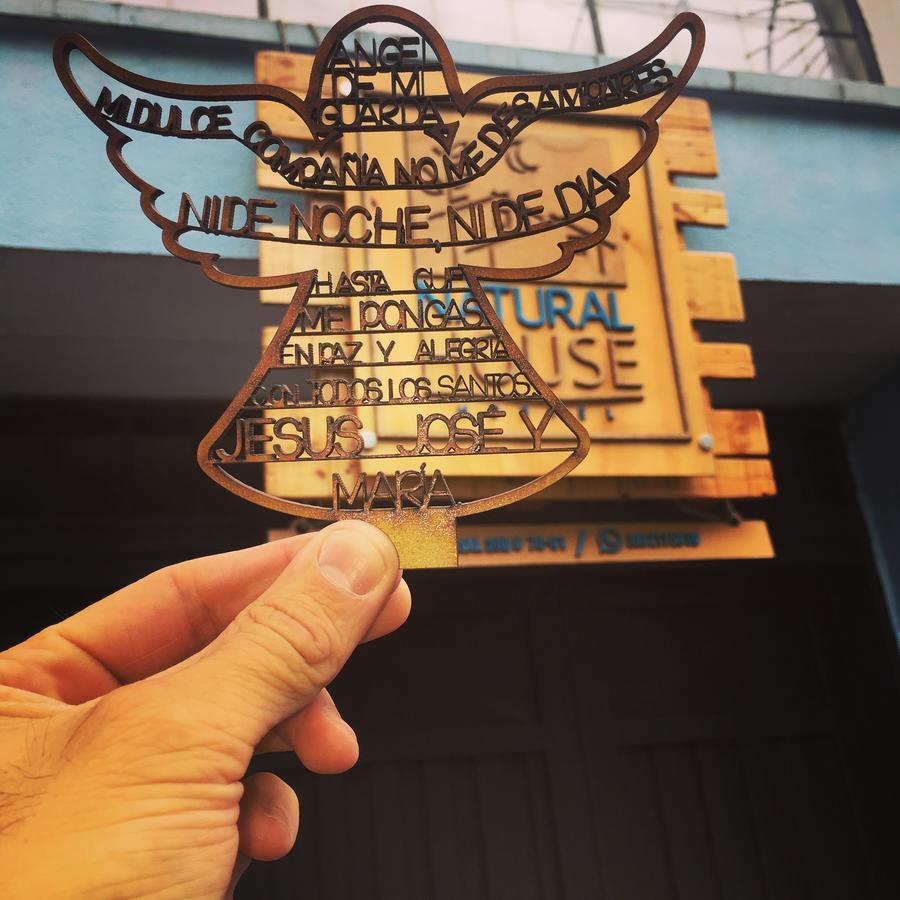 ANGEL
DE MI
GUARDA
MI DULCE COMPAÑIA NO ME DESAMPARES
NI DE NOCHE, NI DE DIA
HASTA QUE
ME PONGAS
EN PAZ Y ALEGRIA
CON TODOS LOS SANTOS,
JESUS JOSÉ Y
MARÍA
NATURAL
HOUSE